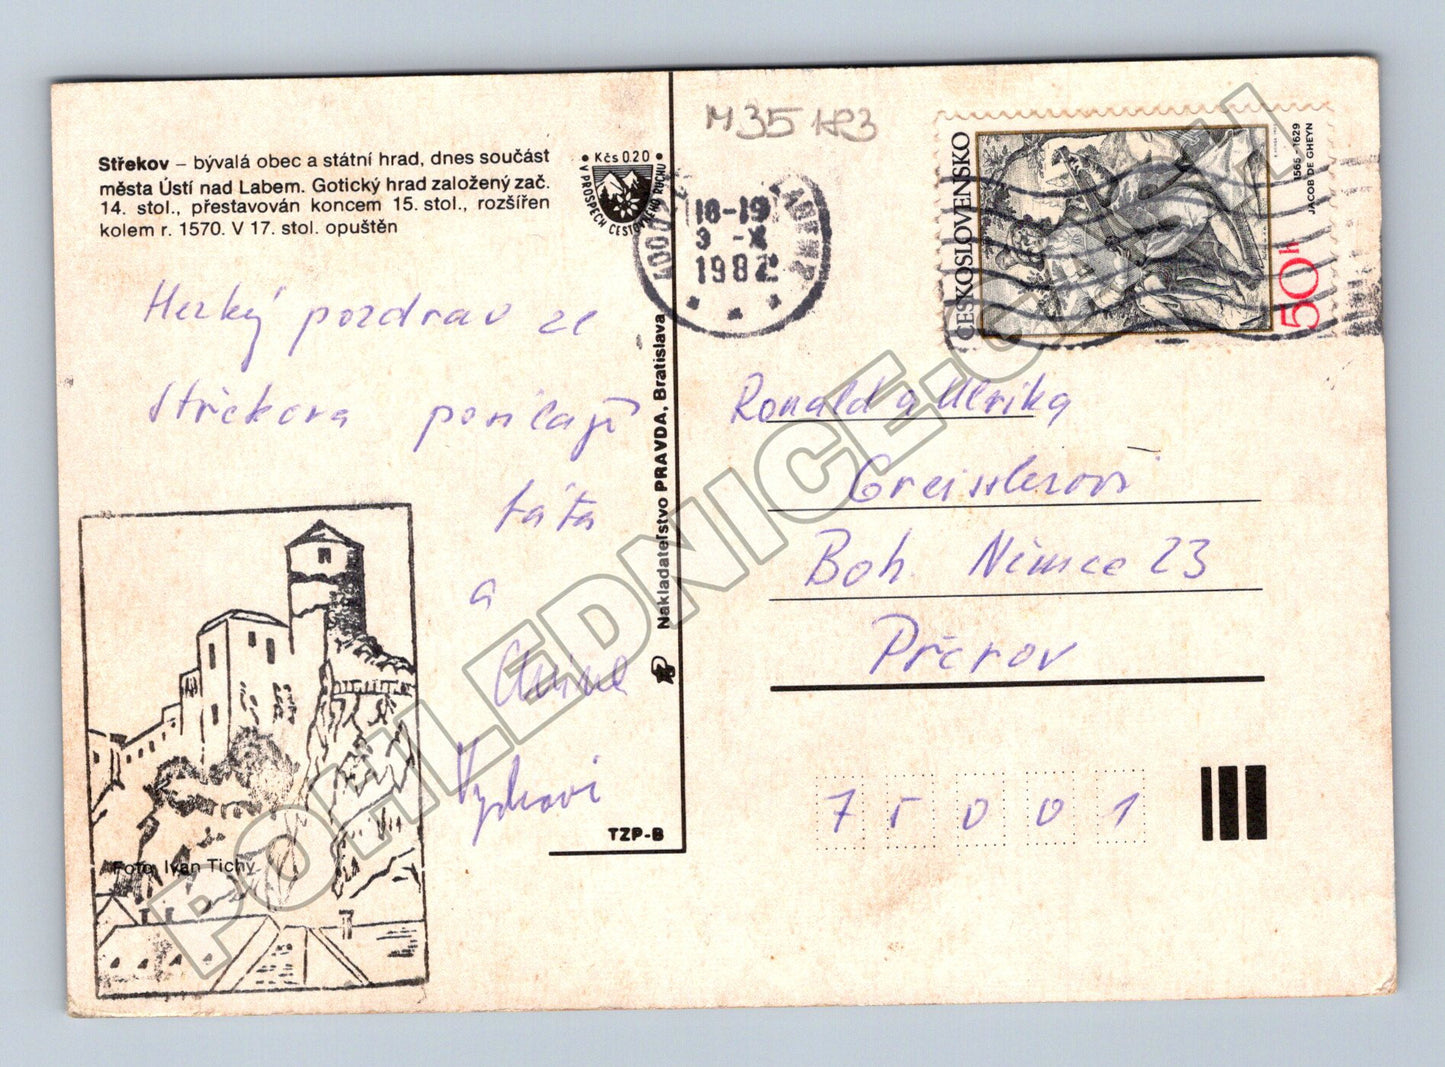 Střekov – bývalá obec a státní hrad, dnes součást
města Ústí nad Labem. Gotický hrad založený zač.
14. stol., přestavován koncem 15. stol., rozšířen
kolem r. 1570. V 17. stol. opuštěn
• Kčs 0.20 •
V PROSPĚCH CESTOVNÉHO RUCHU
M35 H23
400 0
18-19
3 -X
1982
ČESKOSLOVENSKO
50h
1565 - 1629
JACOB DE GHEYN
Hezký pozdrav ze
Střekova posílají
táta
a
Vydrovi
Ronald a Ulrika
Greisslerovi
Boh. Němce 23
Přerov
75001
Nakladateľstvo PRAVDA, Bratislava
TZP-B
Foto: Ivan Tichý
POHLEDNICE.CASH